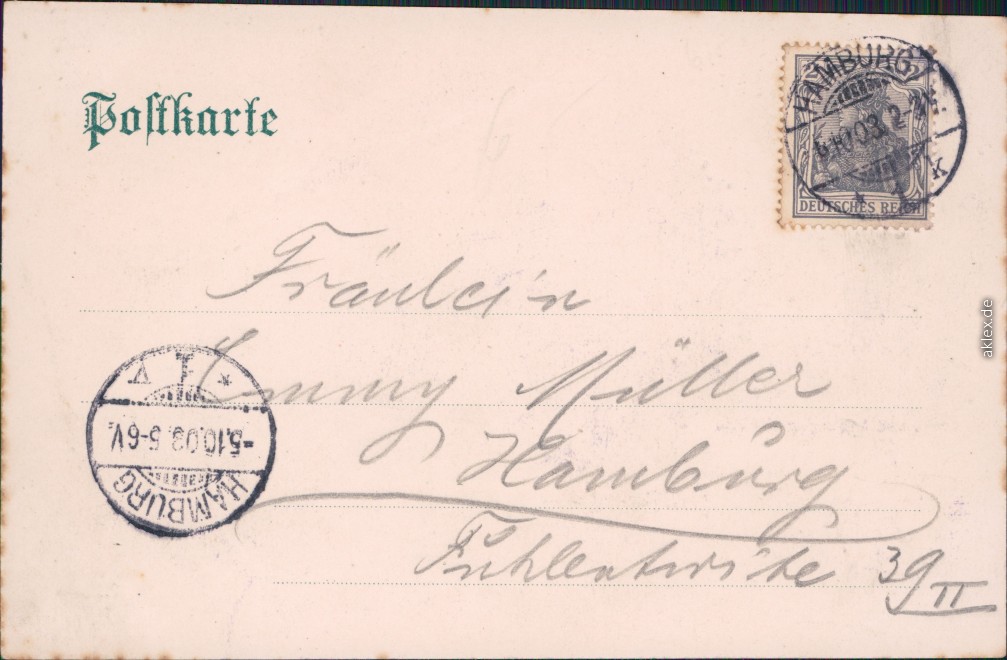 Postkarte
HAMBURG
.10.03. 2-
* 1 K
DEUTSCHES REICH
Fräulein
Emmy Müller
Hamburg
39 II
* 1 V
-5.10.03. 5-6V.
HAMBURG
aklex.de